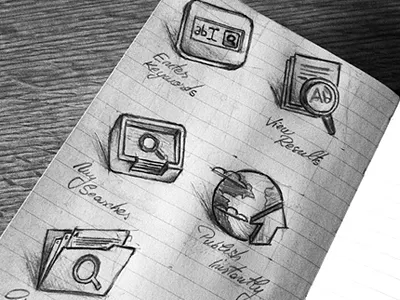 abI
Enter
Keywords
Ab
View
Results
My
Searches
Publish
Instantly